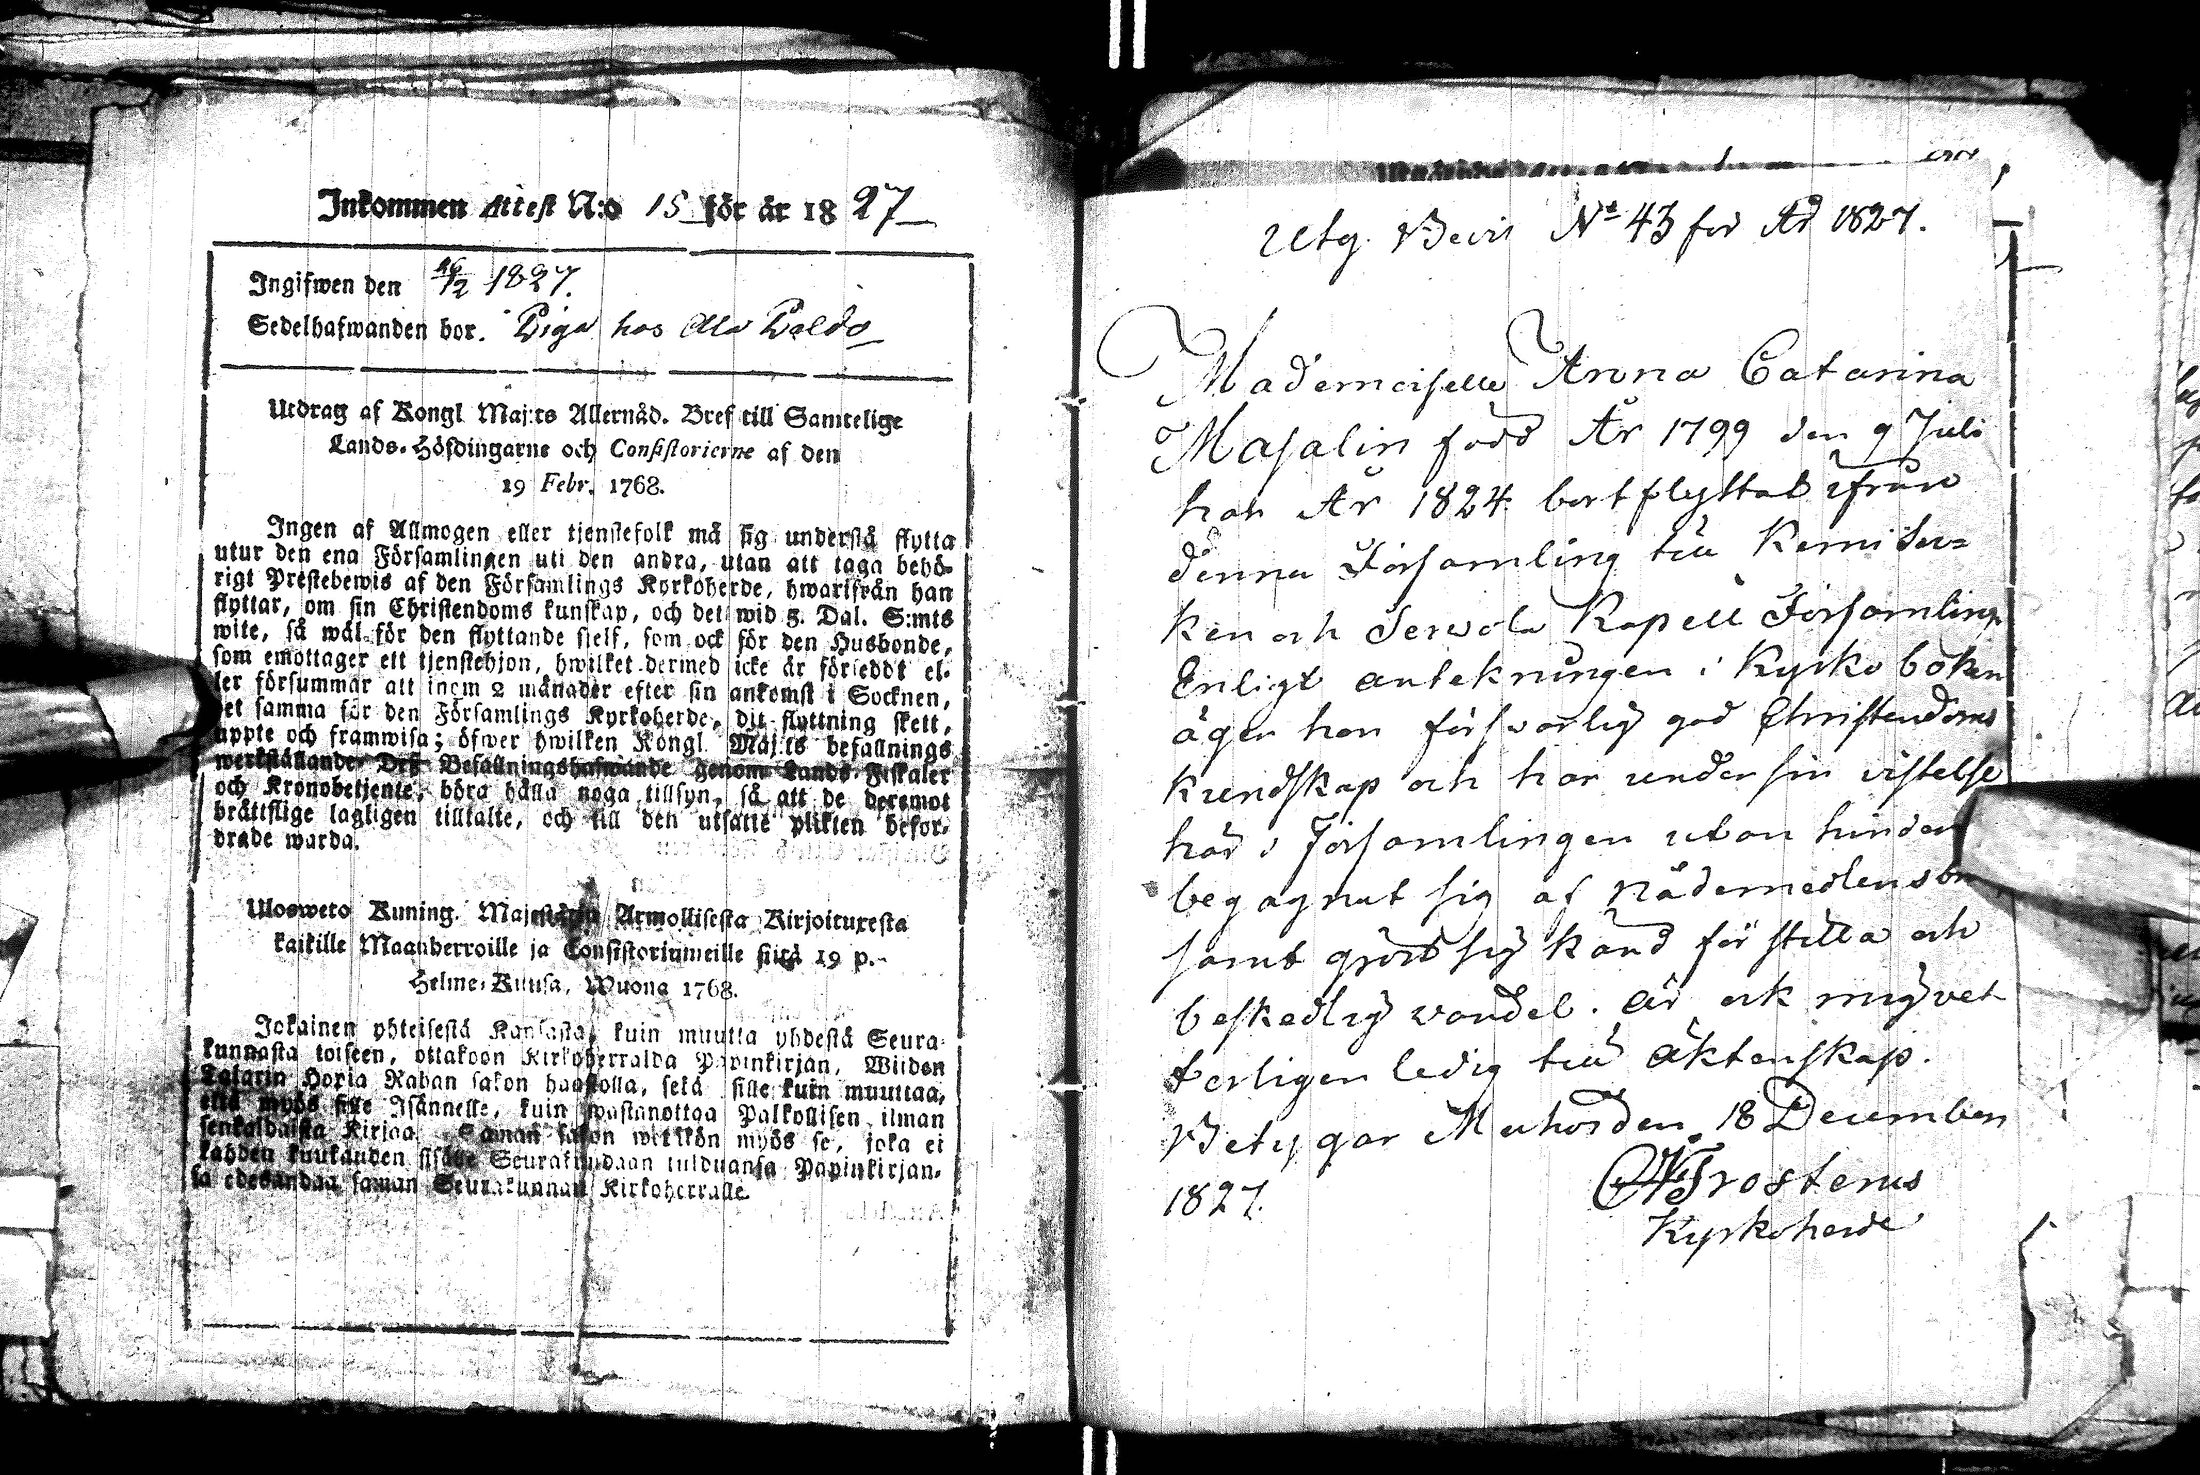 Inkommen Attest N:o 15 för år 1827
Ingifwen den 16/2 1827.
Sedelhafwanden bor. Piga hos Ala Paldo
Utdrag af Kongl Maj:ts Allernåd. Bref till Samtelige
Lands-Höfdingarne och Consistorierne af den
19 Febr. 1768.
Ingen af Allmogen eller tjenstefolk må sig understå flytta
utur den ena Församlingen uti den andra, utan att taga behö-
rigt Prestebewis af den Församlings Kyrkoherde, hwarifrån han
flyttar, om sin Christendoms kunskap, och det wid 5. Dal. S:mts
wite, så wäl för den flyttande sielf, som ock för den Husbonde,
som emottager ett tjenstehjon, hwilket dermed icke är försedt el-
ler försummar att inom 2 månader efter sin ankomst i Socknen,
det samma för den Församlings Kyrkoherde, dit flyttning skett,
uppte och framwisa; öfwer hwilken Kongl Maj:ts befallnings
werkställande Des Befallningshafwande genom Lands-Fiskaler
och Kronobetjente, böra hålla noga tillsyn, så att de deremot
brättslige lagligen tilltalte, och till den utsatte plikten befor-
drade warda.
Ulosweto Kuning. Majestätin Armollisesta Kirjoituxesta
kaikille Maanherroille ja Consistoriumeille siitä 19 p.
Helme-Kuusa, Wuona 1768.
Jokainen yhteisestä Kansasta, kuin muutta yhdestä Seura-
kunnasta toiseen, ottakoon Kirkoherralda Papinkirjan, Wiiden
Talarin Hopia Rahan sakon haastolla, sekä sille kuin muuttaa,
että myös sille Isännelle, kuin wastanottaa Palkollisen ilman
senkaldaista Kirjaa. Saman sakon wetäkön myös se, joka ei
kahden kuukauden sisälle Seurakundaan tulduansa Papinkirjan-
sa edesandaa saman Seurakunnan Kirkoherralle.
Utg. Bevis No 43 för År 1827.
Mademoiselle Anna Catarina
Masalin född År 1799 den 9 Juli
har År 1824 bortflyttat ifrån
denna Församling till Kemi Soc=
ken och Serwola Kapell Församling
Enligt antekningen i Kyrko boken
äger hon försvarlig god Christendoms
kundskap och har under sin vistelse
här i Församlingen utan hinder
begagnat sig af nådemedlen
samt gjordt sig känd för stilla och
beskedlig vandel. är ock mig vet-
terligen ledig till äktenskap.
Betygar Muhos den 18 December
1827. Frosterus
Kyrkoherde